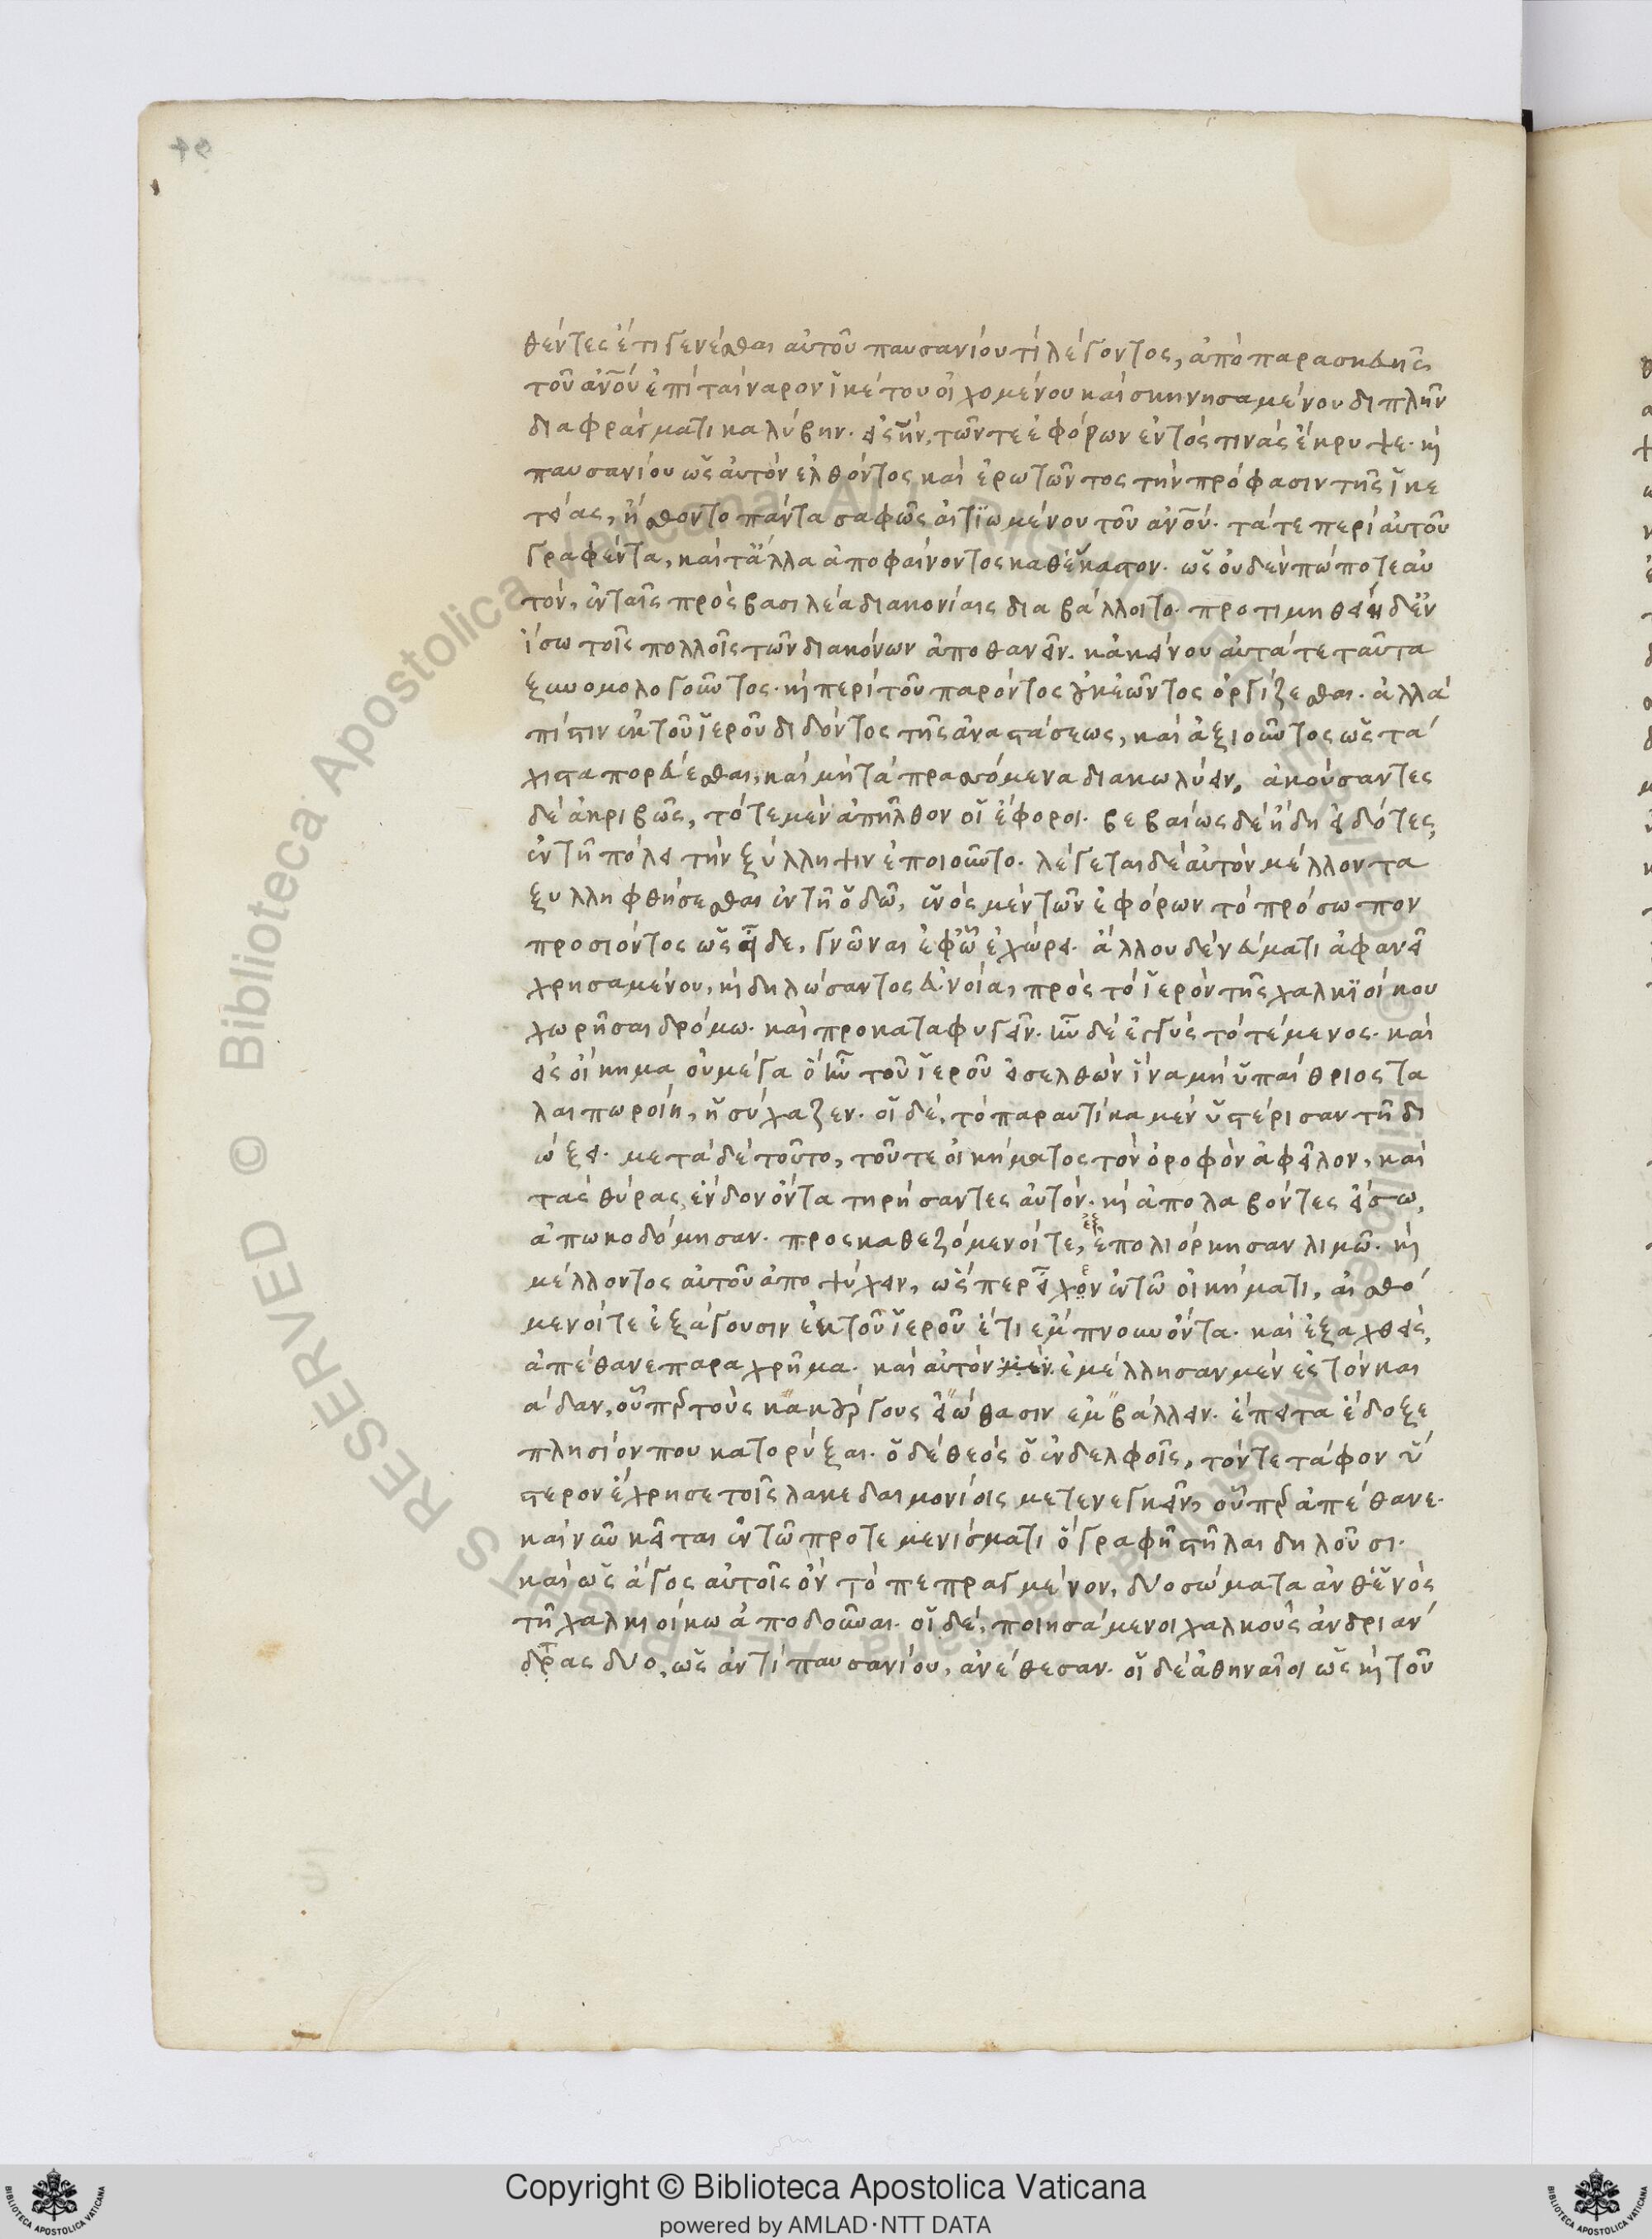 θέντες ἔτι γενέσθαι αὐτοῦ παυσανίου τί λέγοντος, ἀπὸ παρασκευῆς
τοῦ ἀν̅ο̅ύ ἐπὶ ταίναρον ἱκέτου οἰχομένου καὶ σκηνησαμένου διπλῆν
διαφράγματι καλύβην. ἐς ἣν, τῶν τε ἐφόρων ἐντός τινὰς ἔκρυψε. κ(αὶ)
παυσανίου ὡς αὐτὸν ἐλθόντος καὶ ἐρωτῶντος τὴν πρόφασιν τῆς ἱκε
τείας, ἤσθοντο πάντα σαφῶς αἰτϊωμένου τοῦ ἀν̅ο̅ύ. τά τε περὶ αὐτοῦ
γραφέντα, καὶ τἄλλα ἀποφαίνοντος καθ' ἕκαστον. ὡς οὐδὲν πώποτε αὐ
τὸν, ἐν ταῖς πρὸς βασιλέα διακονίαις διαβάλλοιτο. προτιμηθείη δ' ἐν
ἴσω τοῖς πολλοῖς τῶν διακόνων ἀποθανεῖν. κἀκείνου αὐτά τε ταῦτα
ξυνομολογοῦντος. κ(αὶ) περὶ τοῦ παρόντος οὐκ ἐῶντος ὀργίζεσθαι. ἀλλὰ
πίστιν ἐκ τοῦ ἱεροῦ διδόντος τῆς ἀναστάσεως, καὶ ἀξιοῦντος ὡς τά
χιστα πορεύεσθαι, καὶ μὴ τὰ πρασσόμενα διακωλύειν. ἀκούσαντες
δὲ ἀκριβῶς, τότε μὲν ἀπῆλθον οἱ ἔφοροι. βεβαίως δὲ ἤδη εἰδότες,
ἐν τῆ πόλει τὴν ξύλληψιν ἐποιοῦντο. λέγεται δὲ αὐτὸν μέλλοντα
ξυλληφθήσεσθαι ἐν τῆ ὁδῶ, ἑνὸς μὲν τῶν ἐφόρων τὸ πρόσωπον
προσιόντος ὡς εἶδε, γνῶναι ἐφ' ὧ ἐχώρει. ἄλλου δὲ νεύματι ἀφανεῖ
χρησαμένου, κ(αὶ) δηλώσαντος εὐνοία, πρὸς τὸ ἱερὸν τῆς χαλκϊοίκου
χωρῆσαι δρόμω. καὶ προκαταφυγεῖν. ἦν δὲ ἐγγὺς τὸ τέμενος. καὶ
ἐς οἴκημα οὐ μέγα ὃ ἦν τοῦ ἱεροῦ εἰσελθὼν ἵνα μὴ ὑπαίθριος τα
λαιπωροίη, ἡσύχαζεν. οἱ δὲ, τὸ παραυτίκα μὲν ὑστέρισαν τῆ δι
ώξει. μετὰ δὲ τοῦτο, τοῦ τε οἰκήματος τὸν ὄροφον ἀφεῖλον, καὶ
τὰς θύρας, ἔνδον ὄντα τηρήσαντες αὐτὸν. κ(αὶ) ἀπολαβόντες εἴσω,
ἀπωκοδόμησαν. προσκαθεζόμενοί τε, ἐξεπολιόρκησαν λιμῶ. κ(αὶ)
μέλλοντος αὐτοῦ ἀποψύχειν, ὥσπερ εἶχεν ἐν τῶ οἰκήματι, αἰσθό
μενοί τε ἐξάγουσιν ἐκ τοῦ ἱεροῦ ἔτι ἔμπνουν ὄντα. καὶ ἐξαχθεὶς,
ἀπέθανε παραχρῆμα. καὶ αὐτὸν μὲν ἐμέλλησαν μὲν ἐς τὸν και
άδαν, οὗπερ τοὺς κακούργους εἰώθασιν ἐμβάλλειν. ἔπειτα ἔδοξε
πλησίον που κατορύξαι. ὁ δὲ θεὸς ὁ ἐν δελφοῖς, τόν τε τάφον ὕ
στερον ἔχρησε τοῖς λακεδαιμονίοις μετενεγκεῖν, οὗπερ ἀπέθανε.
καὶ νῦν κεῖται ἐν τῶ προτεμενίσματι ὃ γραφῆ στῆλαι δηλοῦσι.
καὶ ὡς ἄγος αὐτοῖς ὂν τὸ πεπραγμένον, δύο σώματα ἀνθ' ἑνὸς
τῆ χαλκιοίκω ἀποδοῦναι. οἱ δὲ, ποιησάμενοι χαλκοῦς ἀνδριάν
τας δύο, ὡς ἀντὶ παυσανίου, ἀνέθεσαν. οἱ δὲ ἀθηναῖοι ὡς κ(αὶ) τοῦ
Copyright © Biblioteca Apostolica Vaticana
powered by AMLAD·NTT DATA